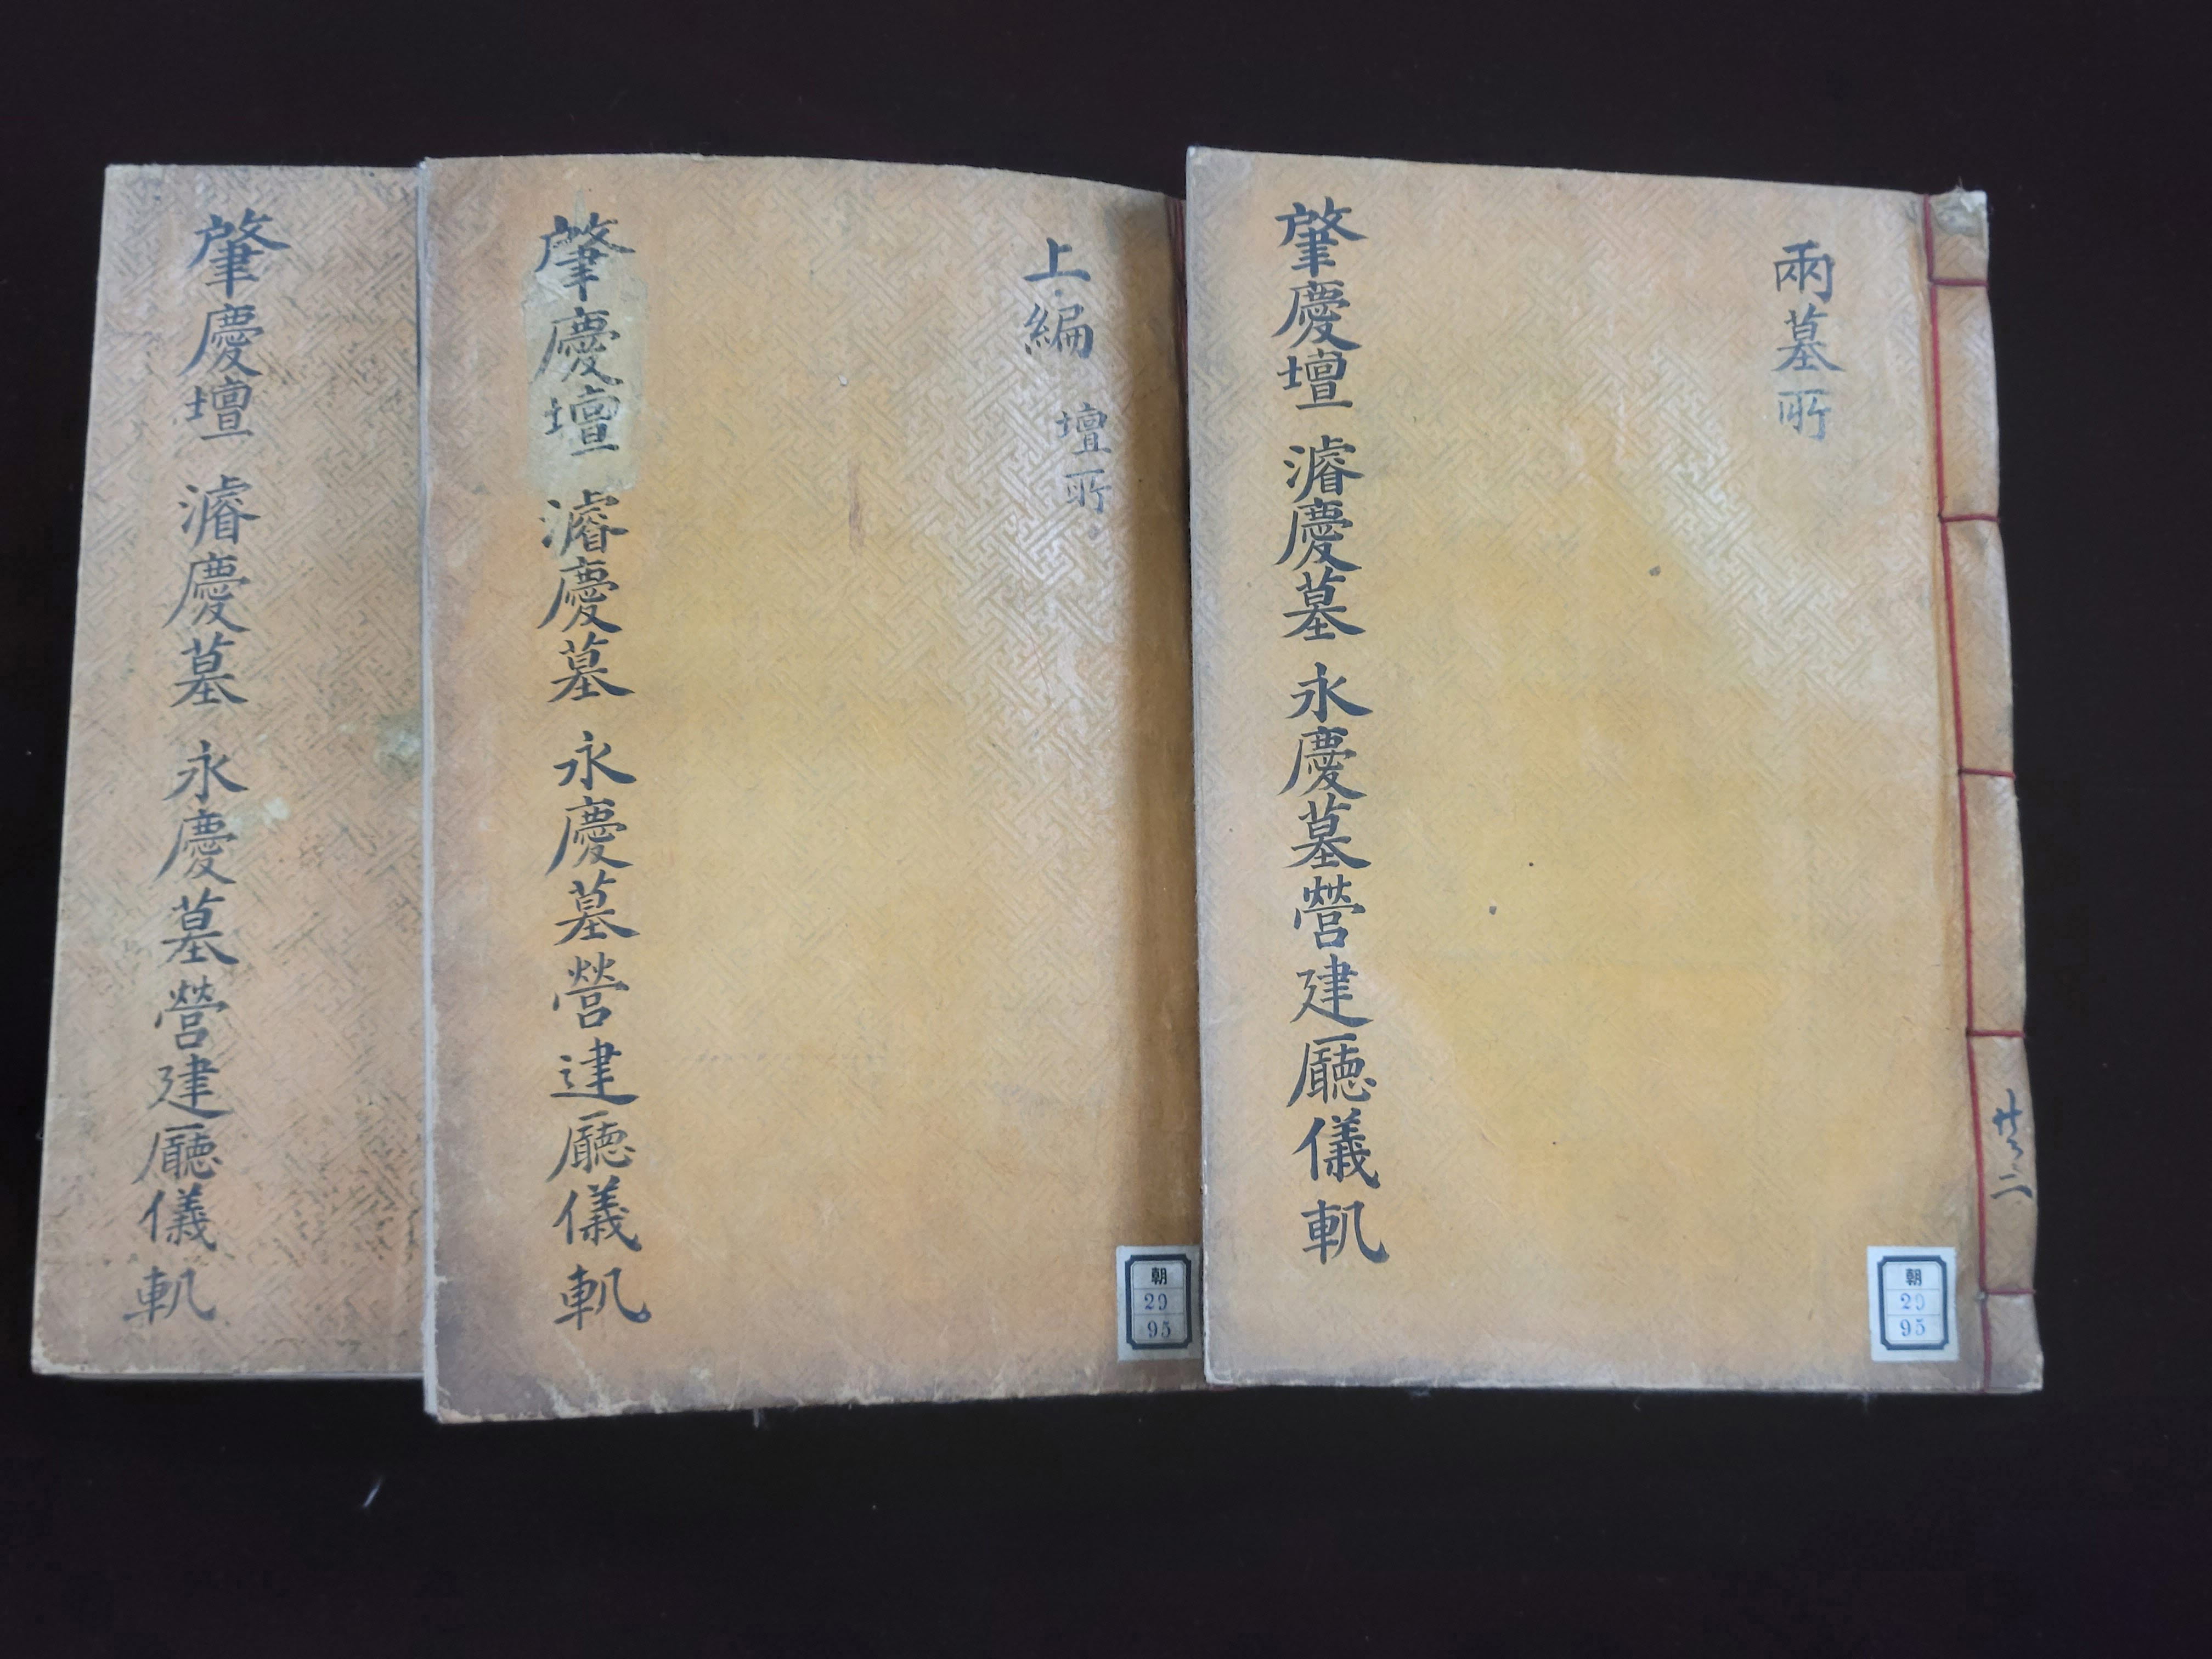 兩墓所
肇慶壇 濬慶墓 永慶墓營建廳儀軌
朝
29
95
上編 壇所
肇慶壇 濬慶墓 永慶墓營建廳儀軌
朝
29
95
肇慶壇 濬慶墓 永慶墓營建廳儀軌